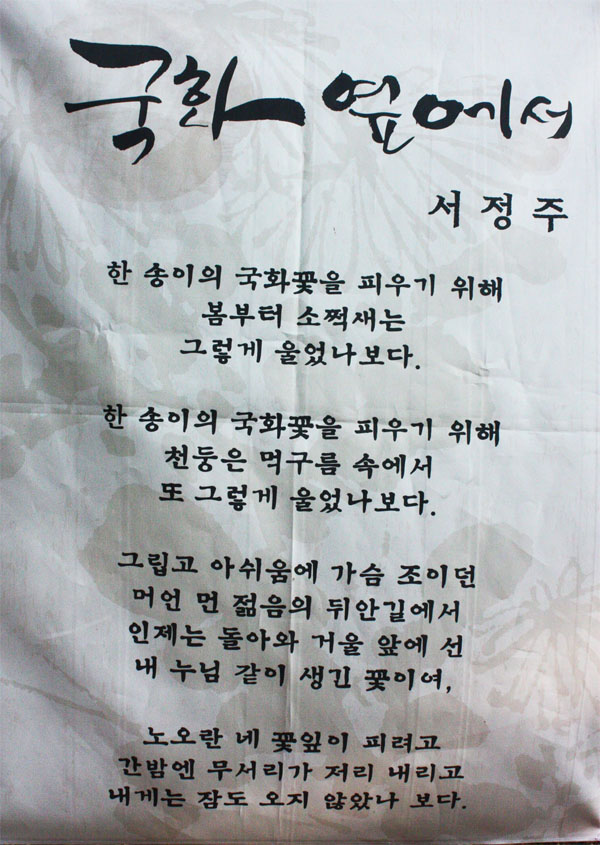 국화 옆에서
서정주
한 송이의 국화꽃을 피우기 위해
봄부터 소쩍새는
그렇게 울었나보다.
한 송이의 국화꽃을 피우기 위해
천둥은 먹구름 속에서
또 그렇게 울었나보다.
그립고 아쉬움에 가슴 조이던
머언 먼 젊음의 뒤안길에서
인제는 돌아와 거울 앞에 선
내 누님 같이 생긴 꽃이여,
노오란 네 꽃잎이 피려고
간밤엔 무서리가 저리 내리고
내게는 잠도 오지 않았나 보다.